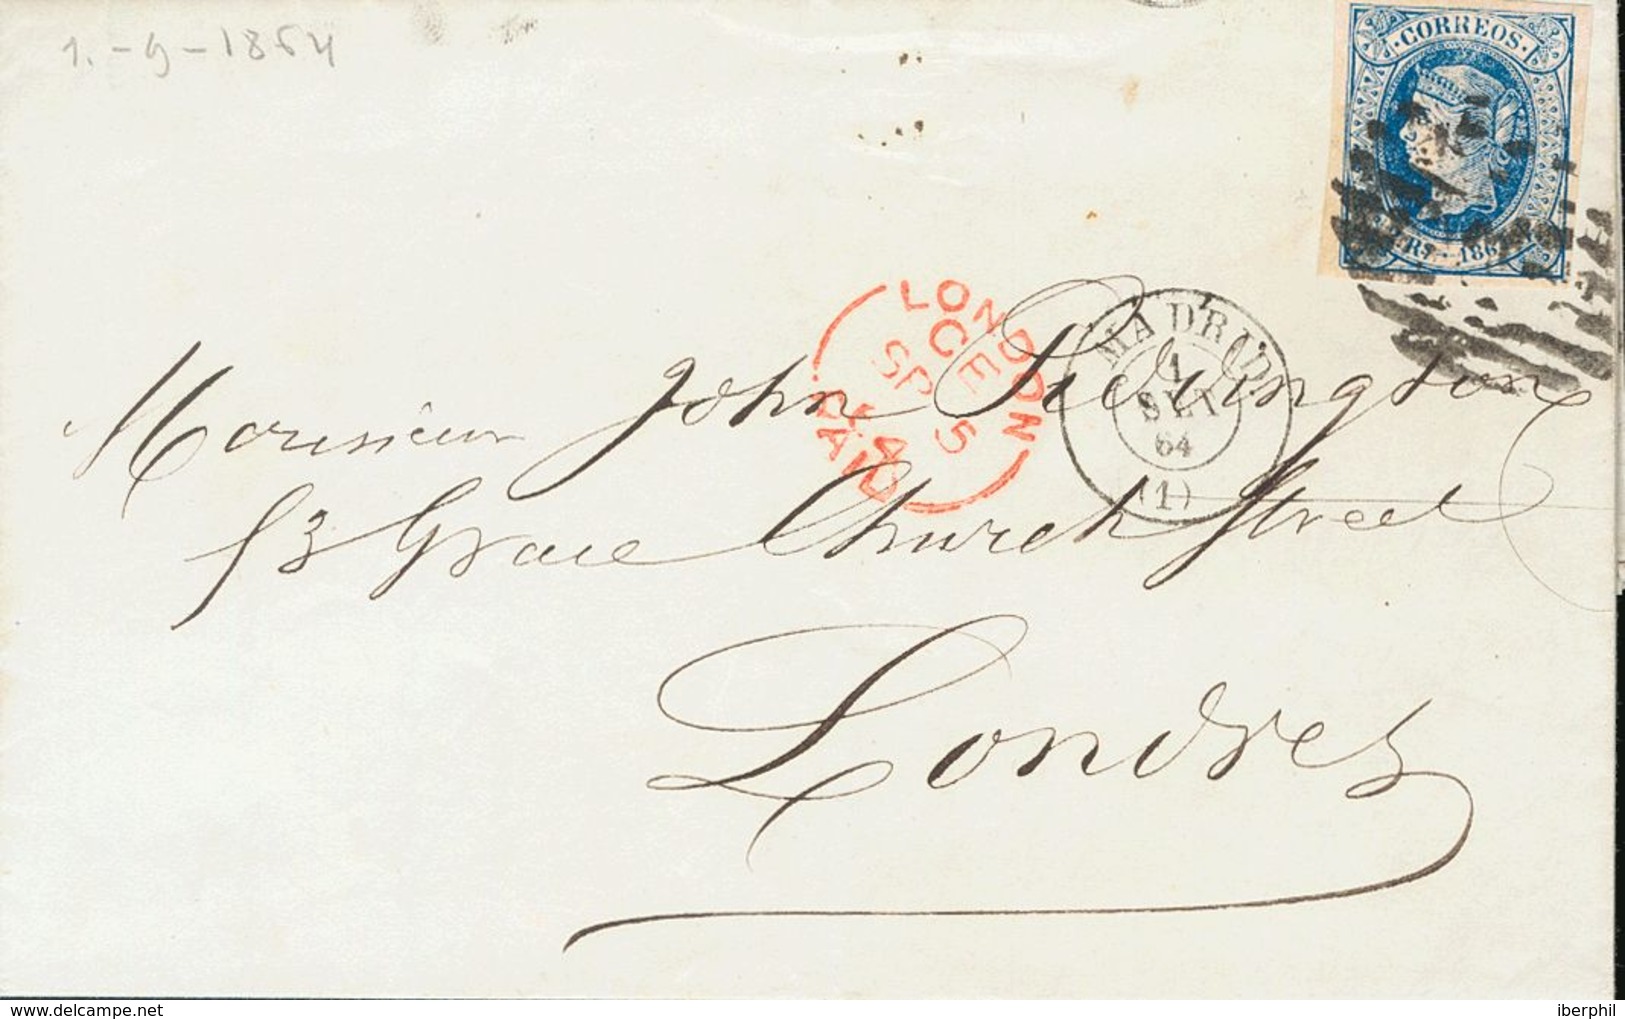 1.-9-1864
CORREOS
LONDON
CE
SP 5
64
PAID
MADRID
1
SET
64
(1)
Monsieur John Pilkington
53 Grace Church Street
Londres
iberphil